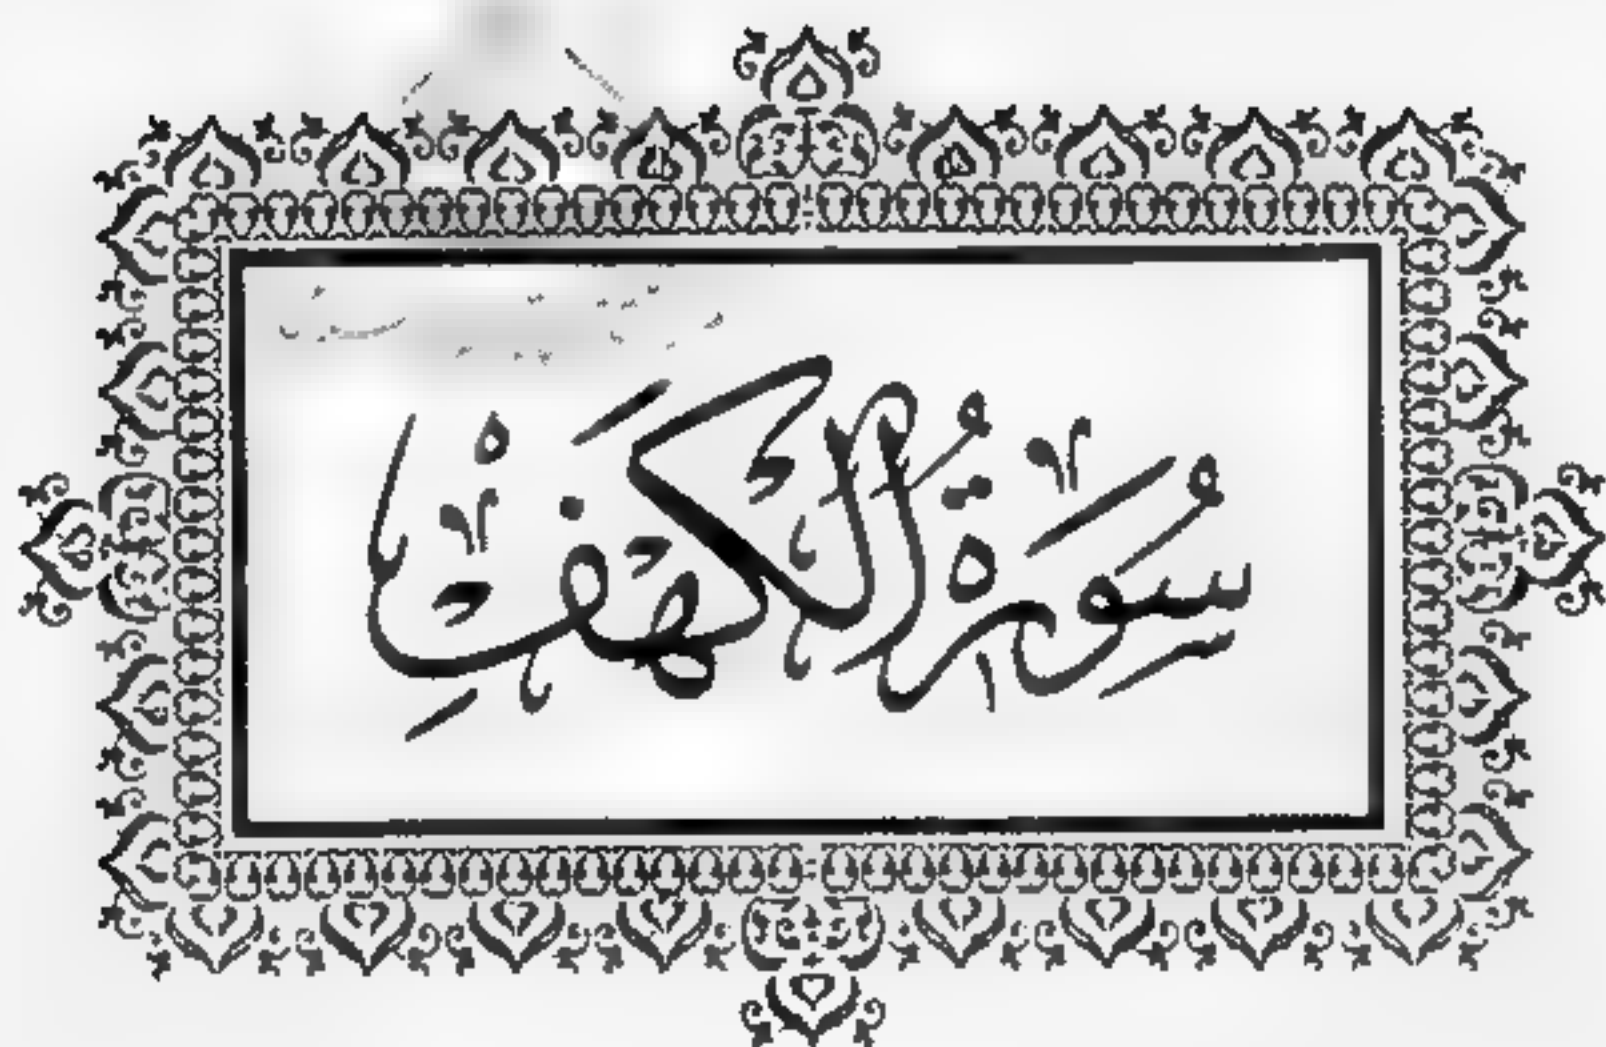 سُورَةُ الْكَهْفِ